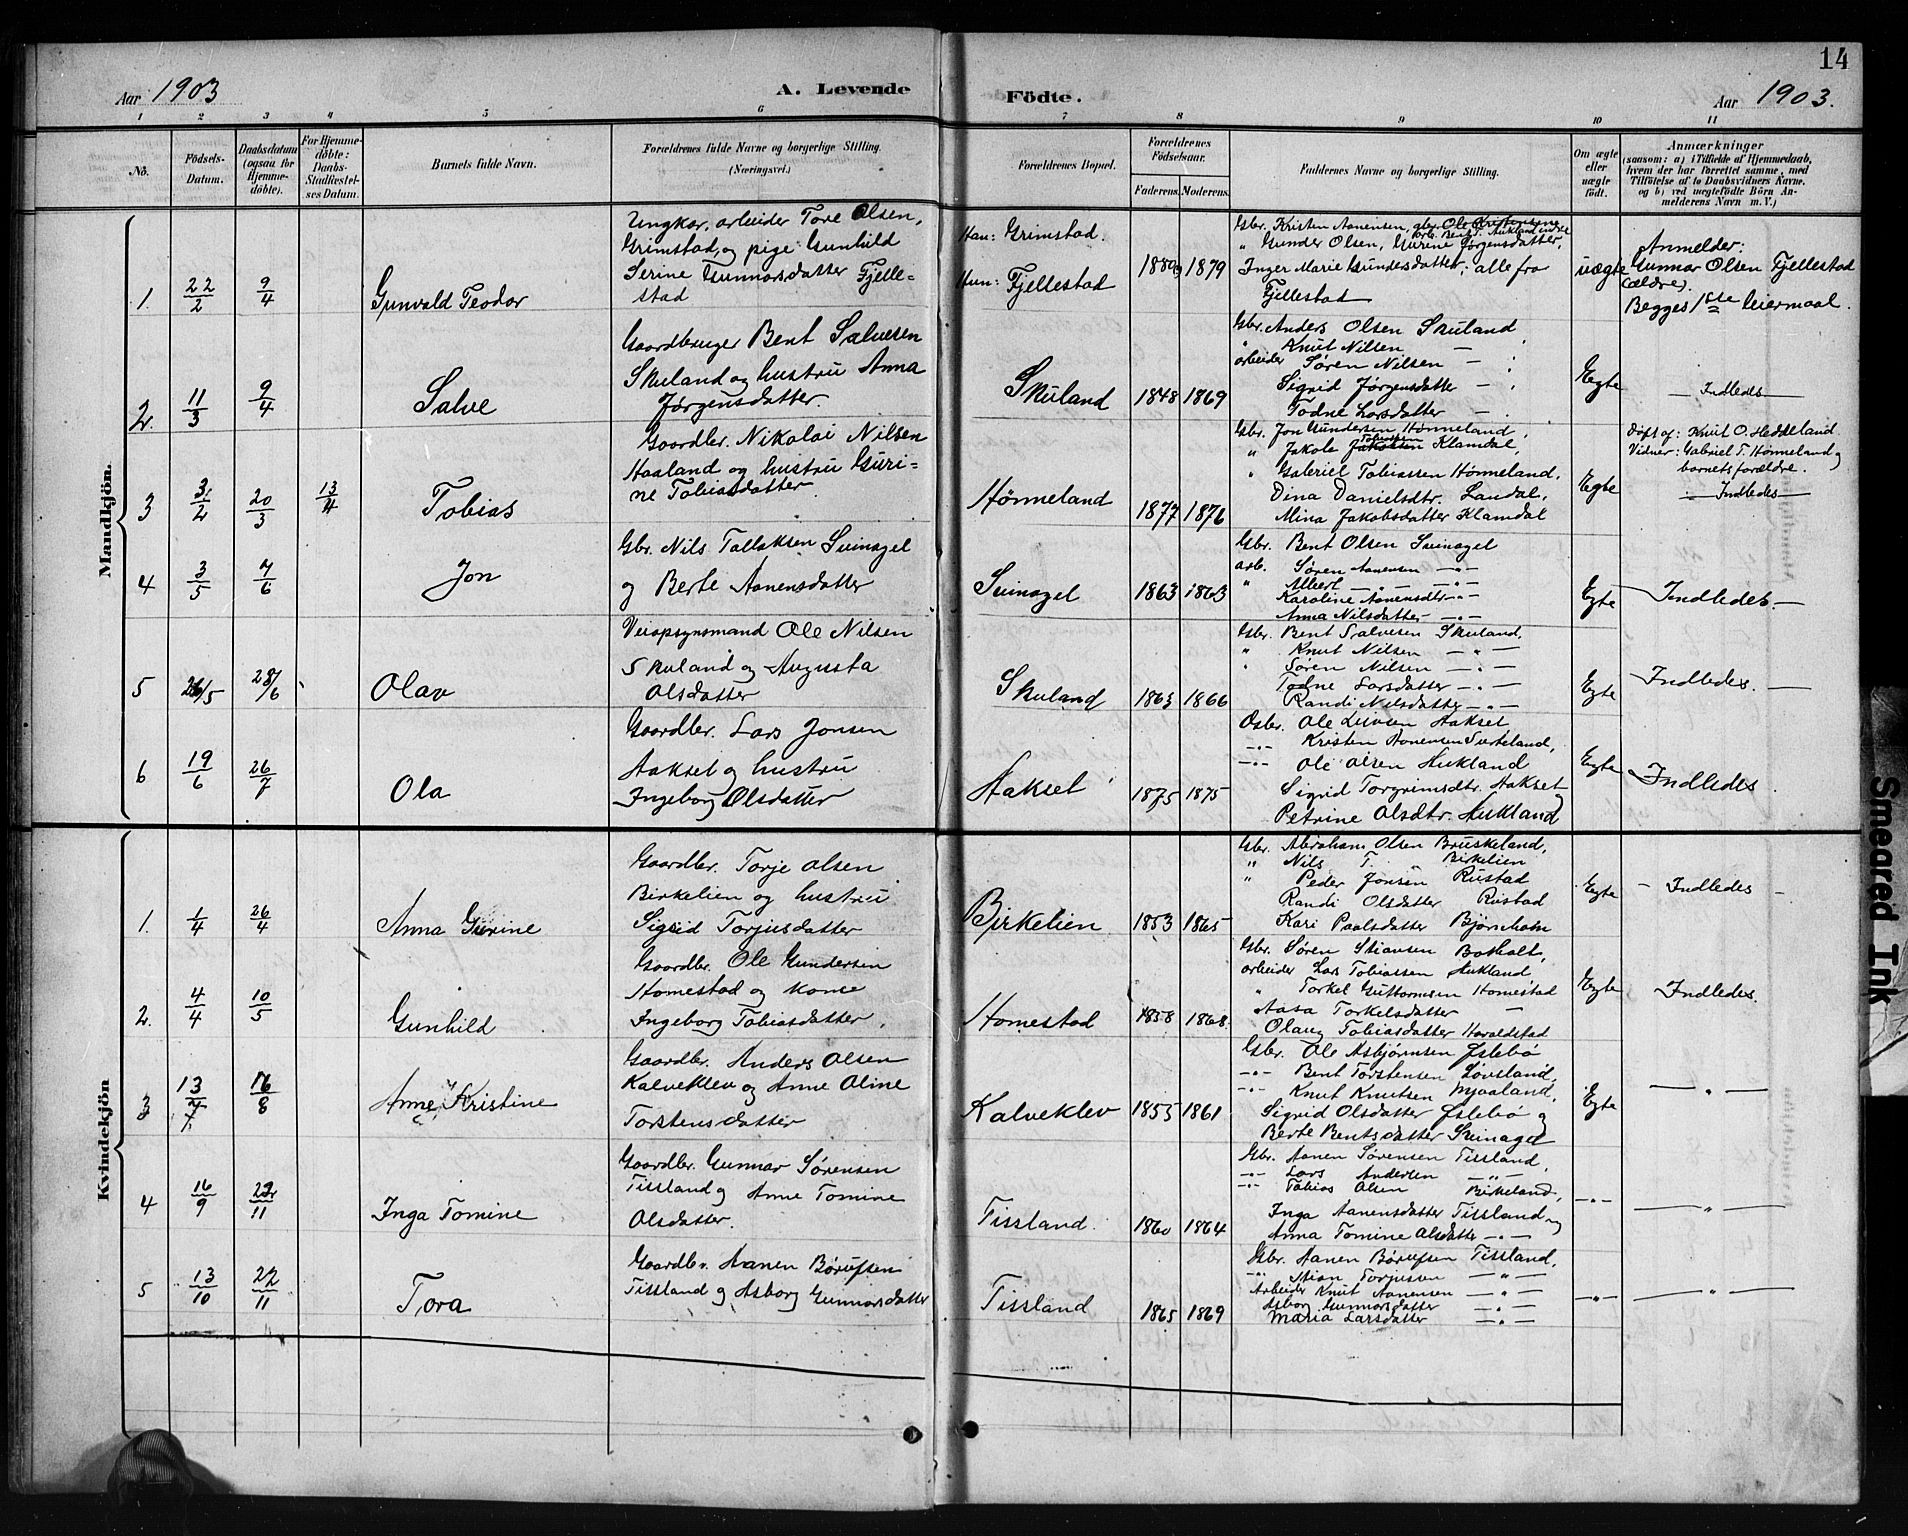 14
Aar 1903
A. Levende
Födte.
Aar 1903.
1 2 3 4 5 6 7 8 9 10 11
No.
Födsels-Datum.
Daabsdatum (ogsaa för Hjemmedöbte).
For Hjemmedöbte: Daabs-Stadfæstelses Datum.
Barnets fulde Navn.
Forældrenes fulde Navne og borgerlige Stilling. (Næringsvei.)
Forældrenes Bopæl.
Forældrenes Födselsaar.
Faderens. Moderens.
Faddernes Navne og borgerlige Stilling.
Om ægte eller uægte födt.
Anmærkninger
(saasom: a) i Tilfælde af Hjemmedaab,
hvem der har forrettet samme, med
Tilföielse af to Daabsvidners Navne,
og b) ved uægtefödte Börn An-
melderens Navn m. V.)
Mandkjön.
1. 22/2 9/4
Gunvald Teodor
Ungkar, arbeider Tore Olsen,
Grimstad, og pige Gunhild
Serine Gunnarsdatter Fjelle-
stad
Han: Grimstad.
Hun: Fjellestad
1879
Gbr. Kristen Aanensen, gbr. Ole Kristensen
" Gunder Olsen, Gurine Jørgensdatter,
Inger Marie Gundersdatter; alle fra
Fjellestad
uægte
Anmelder:
Gunnar Olsen Fjellestad
(ældre).
Begges 1ste leiermaal.
2. 11/3 9/4
Salve
Gaardbruger Bent Salvesen
Skuland og hustru Anna
Jørgensdatter.
Skuland
1848 1869
Gbr. Anders Olsen Skuland
" Knut Nilsen —
arbeider Søren Nilsen —
Sigrid Jørgensdatter —
Todne Larsdatter —
Egte
— Indledes —
3 3/2 20/3 13/4
Tobias
Gaardbr. Nikolai Nilsen
Haaland og hustru Guri-
ne Tobiasdatter.
Hønneland
1877 1876
Gbr. Jon Gundersen Hønneland,
" Jakob Tobiassen Klamdal,
" Gabriel Tobiassen Hønneland,
Dina Danielsdtr. Landal,
Mina Jakobsdatter Klamdal
Egte
døpt af: Knut O. Heddeland
Vidner: Gabriel T. Hønneland og
barnets forældre.
— Indledes —
4 3/5 7/6
Jon
Gbr. Nils Tallaksen Svinagel
og Berte Aanensdatter
Svinagel
1863 1863
Gbr. Bent Olsen Svinagel
arb. Søren Aanensen — " —
" Albert — " — — " —
Karoline Aanensdtr — " —
Anna Nilsdatter — " —
Egte
Indledes. —
5 26/5 28/6
Olav
Veiopsynsmand Ole Nilsen
Skuland og Augusta
Olsdatter
Skuland
1863 1866
Gbr. Bent Salvesen Skuland,
" Knut Nilsen — " —
" Søren Nilsen — " —
Todne Larsdatter — " —
Randi Nilsdatter — " —
Egte
Indledes. —
6 19/6 26/7
Ola
Gaardbr. Lars Jonsen
Aakset og hustru
Ingeborg Olsdatter
Aakset
1875 1875
Gbr. Ole Aakset
— " — Kristen Aanensen
— " — Ole Olsen Aukland
Sigrid Torgrimsdtr. Aakset og
Petrine Olsdtr. Aukland
Egte
Indledes.
Kvindekjön
1. 1/4 26/4
Anna Gurine
Gaardbr. Torje Olsen
Birkelien og hustru
Sigrid Torjusdatter
Birkelien
1853 1865
Gbr. Abraham Olsen Bruskeland,
" Nils T. Birkelien
" Peder Jonsen Rustad
Randi Olsdatter Rustad
Kari Paalsdatter Bjørnholm
Egte
— Indledes —
2. 4/4 10/5
Gunhild
Gaardbr. Ole Gundersen
Homestad og kone
Ingeborg Tobiasdatter.
Homestad
1858 1868
Gbr. Søren Stiansen Bohalt,
arbeider Lars Tobiassen Aukland,
" Torkel Guttormsen Homestad
Aasa Torkelsdatter —
Olaug Tobiasdatter Haraldstad
Egte
Indledes.
3 13/7 16/8
Anne Kristine
Gaardbr. Anders Olsen
Kalveklev og Anne Oline
Torstensdatter
Kalveklev
1855 1861
Gbr. Ole Asbjørnsen Øslebø
— " — Bent Torstensen Løveland,
— " — Knut Knutsen Mjaaland,
Sigrid Olsdatter Øslebø og
Berte Bentsdatter Svinagel
Egte
— " —
4 16/9 22/11
Inga Tomine
Gaardbr. Gunnar Sørensen
Tissland og Anne Tomine
Olsdatter.
Tissland.
1860 1864
Gbr. Aanen Sørensen Tissland,
— " — Lars Andersen — " —
— " — Tobias Olsen Birkeland,
Inga Aanensdatter Tissland og
Anna Tomine Olsdatter — " —
— " —
— " —
5 13/10 22/11
Tora
Gaardbr. Aanen Børufsen
Tissland og Asborg Gunnarsdatter
Tissland
1865 1869
Gbr. Aanen Børufsen Tissland,
— " — Stian Torjusen — " —
Arbeider Knut Aanensen — " —
Asborg Gunnarsdatter — " —
Maria Larsdatter — " —
— " —
— " —
Smeared Ink